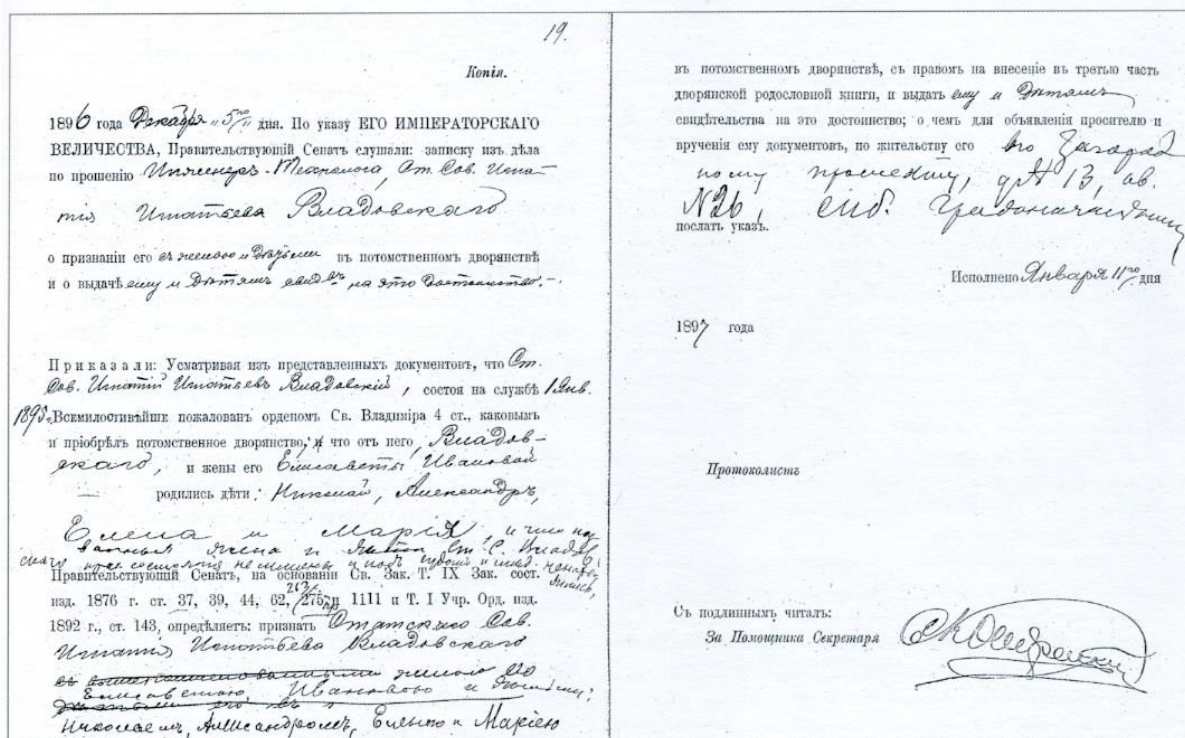 19.
Копія.
1896 года Декабря „5го" дня. По указу ЕГО ИМПЕРАТОРСКАГО
ВЕЛИЧЕСТВА, Правительствующій Сенатъ слушали: записку изъ дѣла
по прошенію Инженеръ-Технолога, Ст. Сов. Игна-
тія Игнатьева Владовскаго
о признаніи его съ женою и дѣтьми въ потомственномъ дворянствѣ
и о выдачѣ ему и дѣтямъ свидѣвъ на это достоинство.-
Приказали: Усматривая изъ представленныхъ документовъ, что Ст.
Сов. Игнатій Игнатьевъ Владовскій, состоя на службѣ 1 Янв.
1895г. Всемилостивѣйше пожалованъ орденомъ Св. Владиміра 4 ст., каковымъ
и пріобрѣлъ потомственное дворянство, и что отъ него, Владов-
скаго, и жены его Елисаветы Ивановой
родились дѣти: Николай, Александръ,
Елена и Марія, и что
жена и Ст. С. Владов-
скаго не и подъ судомъ и
Правительствующій Сенатъ, на основаніи Св. Зак. Т. IX Зак. сост.
изд. 1876 г. ст. 37, 39, 44, 62, 263/275 и 1111 и Т. I Учр. Орд. изд.
1892 г., ст. 143, опредѣляетъ: признать Статскаго Сов.
Игнатія Игнатьева Владовскаго
съ вышепоименованными женою его
Елисаветою Ивановою и дѣтьми:
Николаемъ, Александромъ, Еленою и Маріею
въ потомственномъ дворянствѣ, съ правомъ на внесеніе въ третью часть
дворянской родословной книги, и выдать ему и дѣтямъ
свидѣтельства на это достоинство; о чемъ для объявленія просителю и
врученія ему документовъ, по жительству его по Загород
ному проспекту, д. № 13, кв.
№ 26, СПб. Градоначальнику
послать указъ.
Исполнено Января 11го дня
1897 года
Протоколистъ
Съ подлиннымъ читалъ:
За Помощника Секретаря